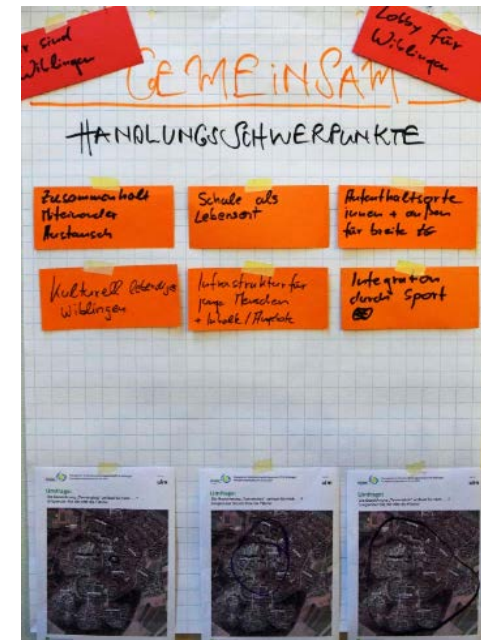 Wir sind
Wiblingen
Lobby für
Wiblingen
GEMEINSAM
HANDLUNGSSCHWERPUNKTE
Zusammenhalt
Miteinander
Austausch
Schule als
Lebensort
Aufenthaltsorte
innen + außen
für breite
Kulturell lebendiges
Wiblingen
Infrastruktur für
junge Menschen
+ Inhalte / Angebote
Integration
durch Sport
Umfrage:
ulm
Umfrage:
ulm
Umfrage:
ulm